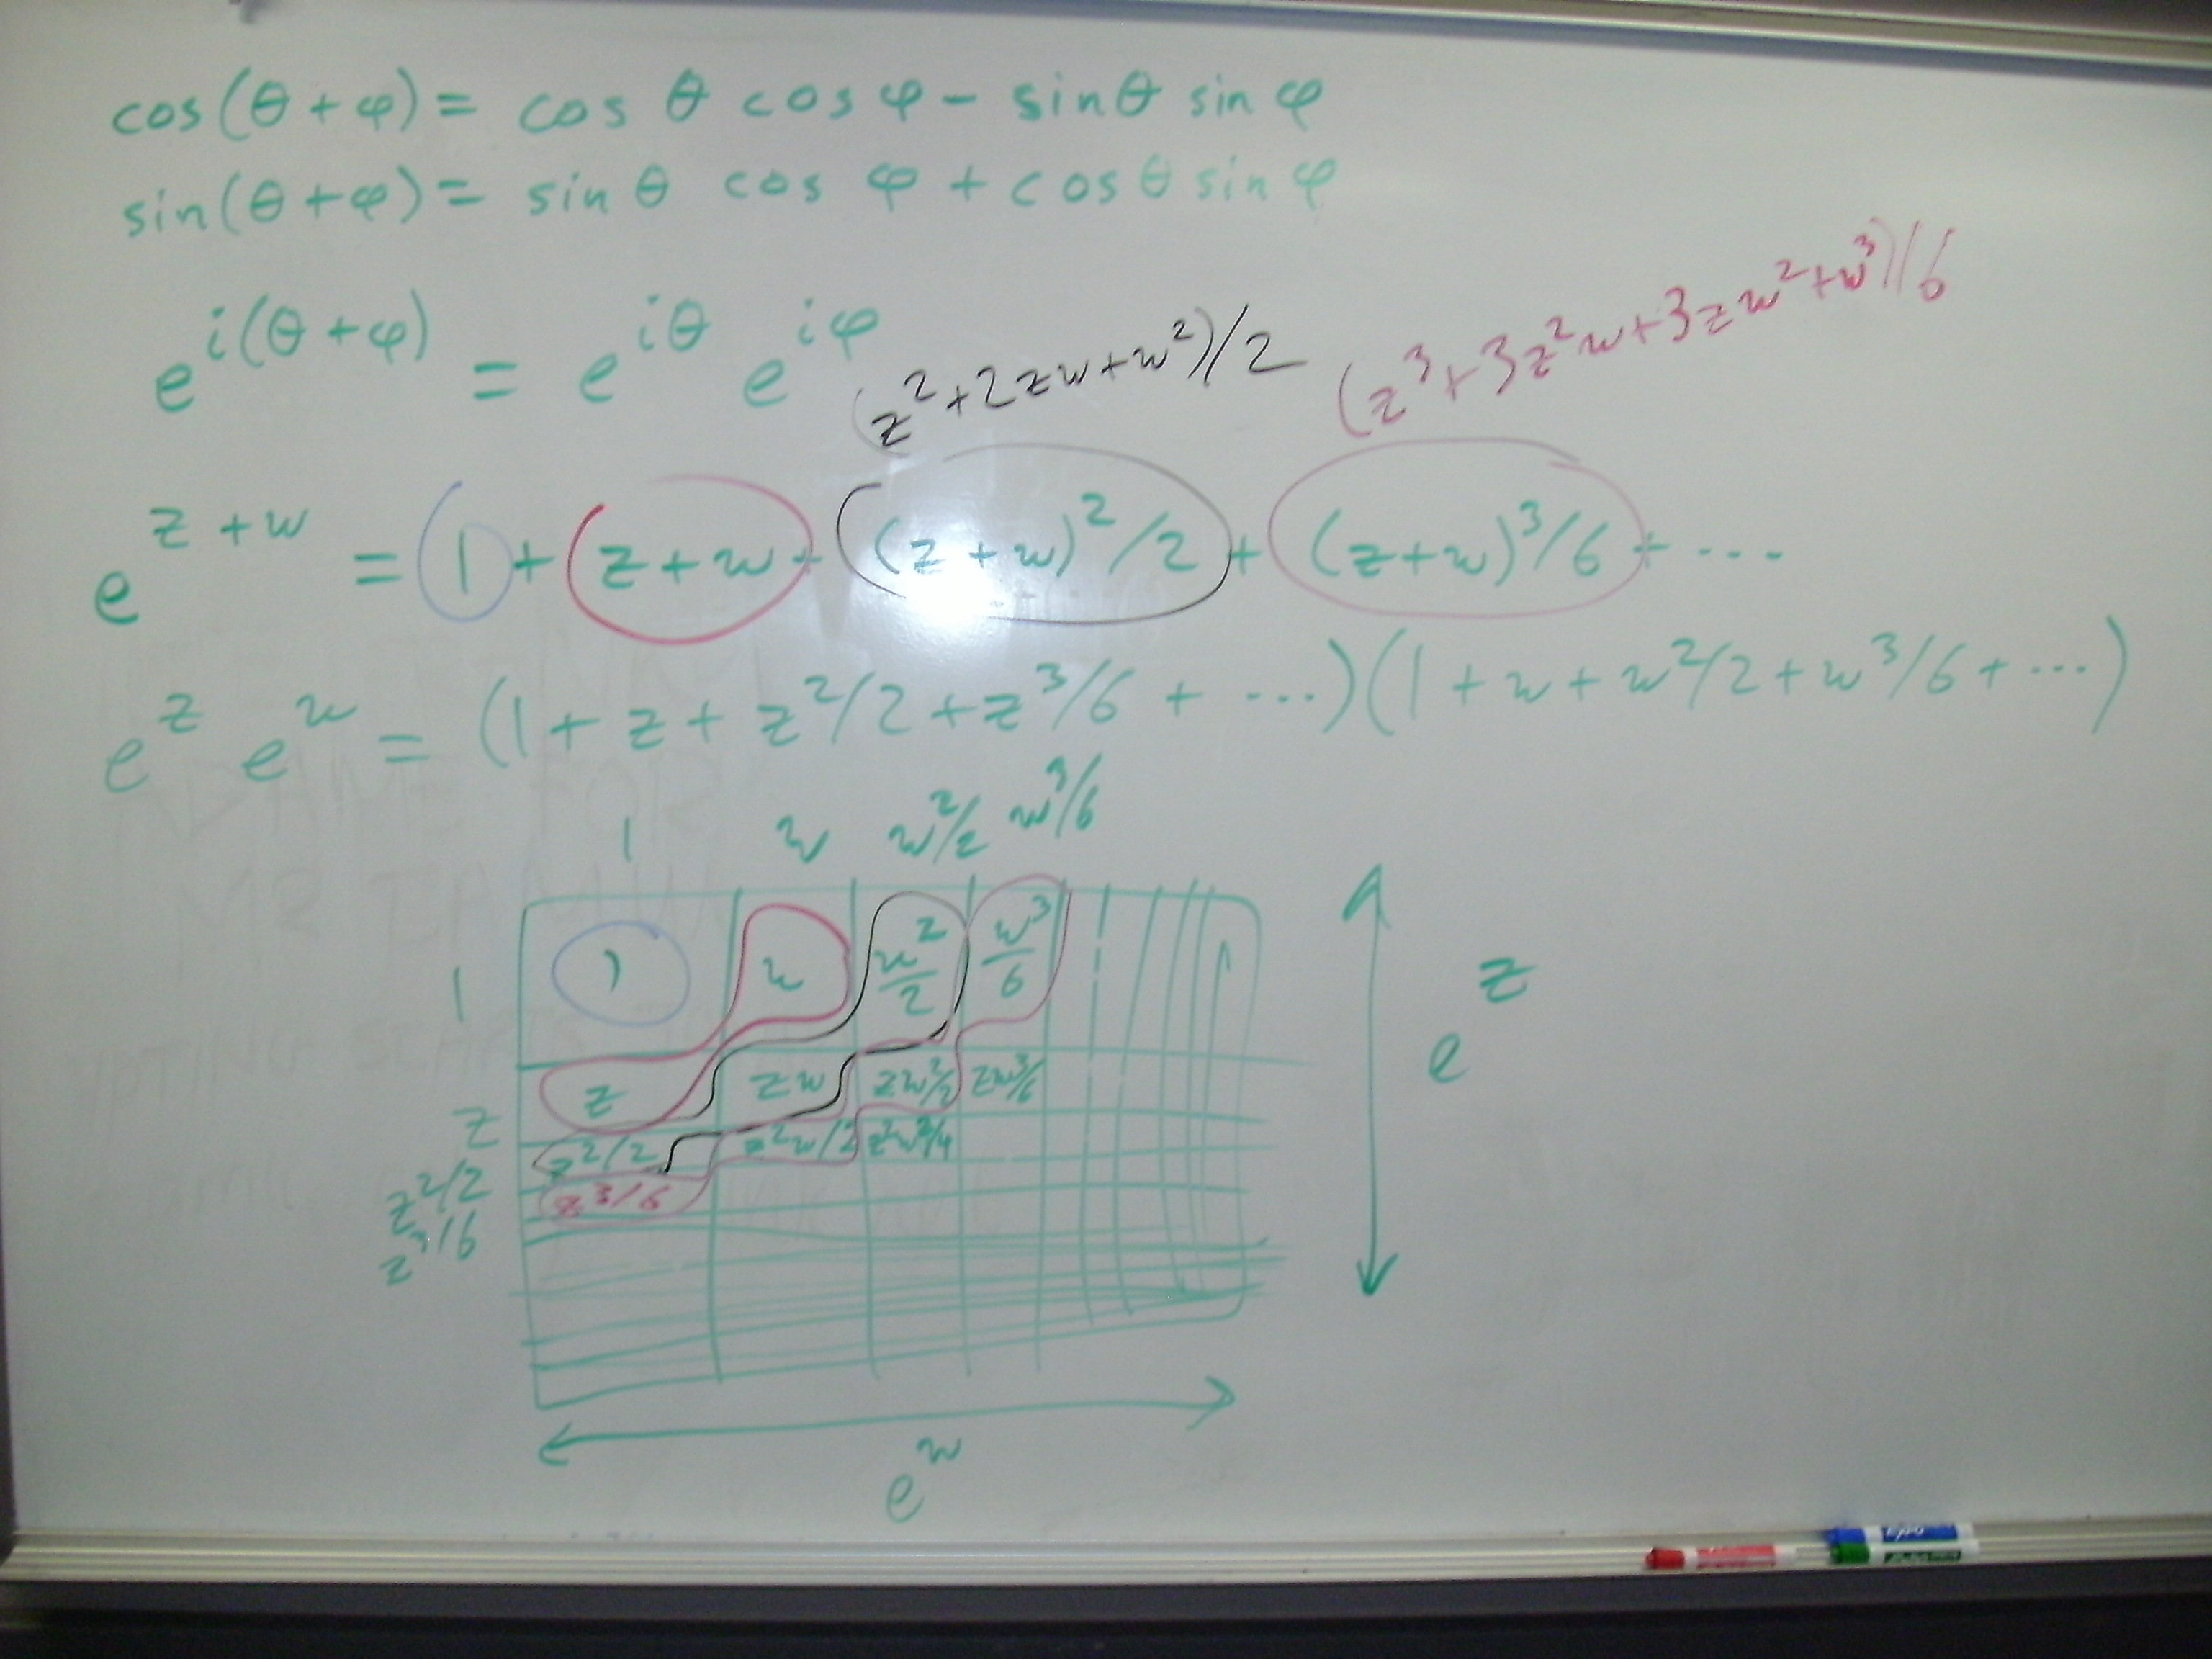 cos(θ+φ) = cos θ cos φ − sin θ sin φ
sin(θ+φ) = sin θ cos φ + cos θ sin φ
e^{i(θ+φ)} = e^{iθ} e^{iφ}
(z³+3z²w+3zw²+w³)/6
(z²+2zw+w²)/2
e^{z+w} = 1 + z+w + (z+w)²/2 + (z+w)³/6 + ···
e^z e^w = (1 + z + z²/2 + z³/6 + ···)(1 + w + w²/2 + w³/6 + ···)
1 w w²/2 w³/6
1 1 w w²/2 w³/6
z z zw zw²/2 zw³/6
z²/2 z²/2 z²w/2 z²w²/4
z³/6 z³/6
e^z
e^w
EXPO